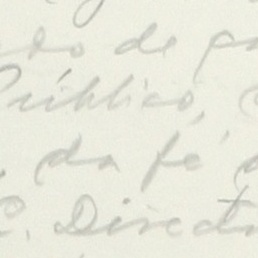 do de
Público,
da fé
C. Direct